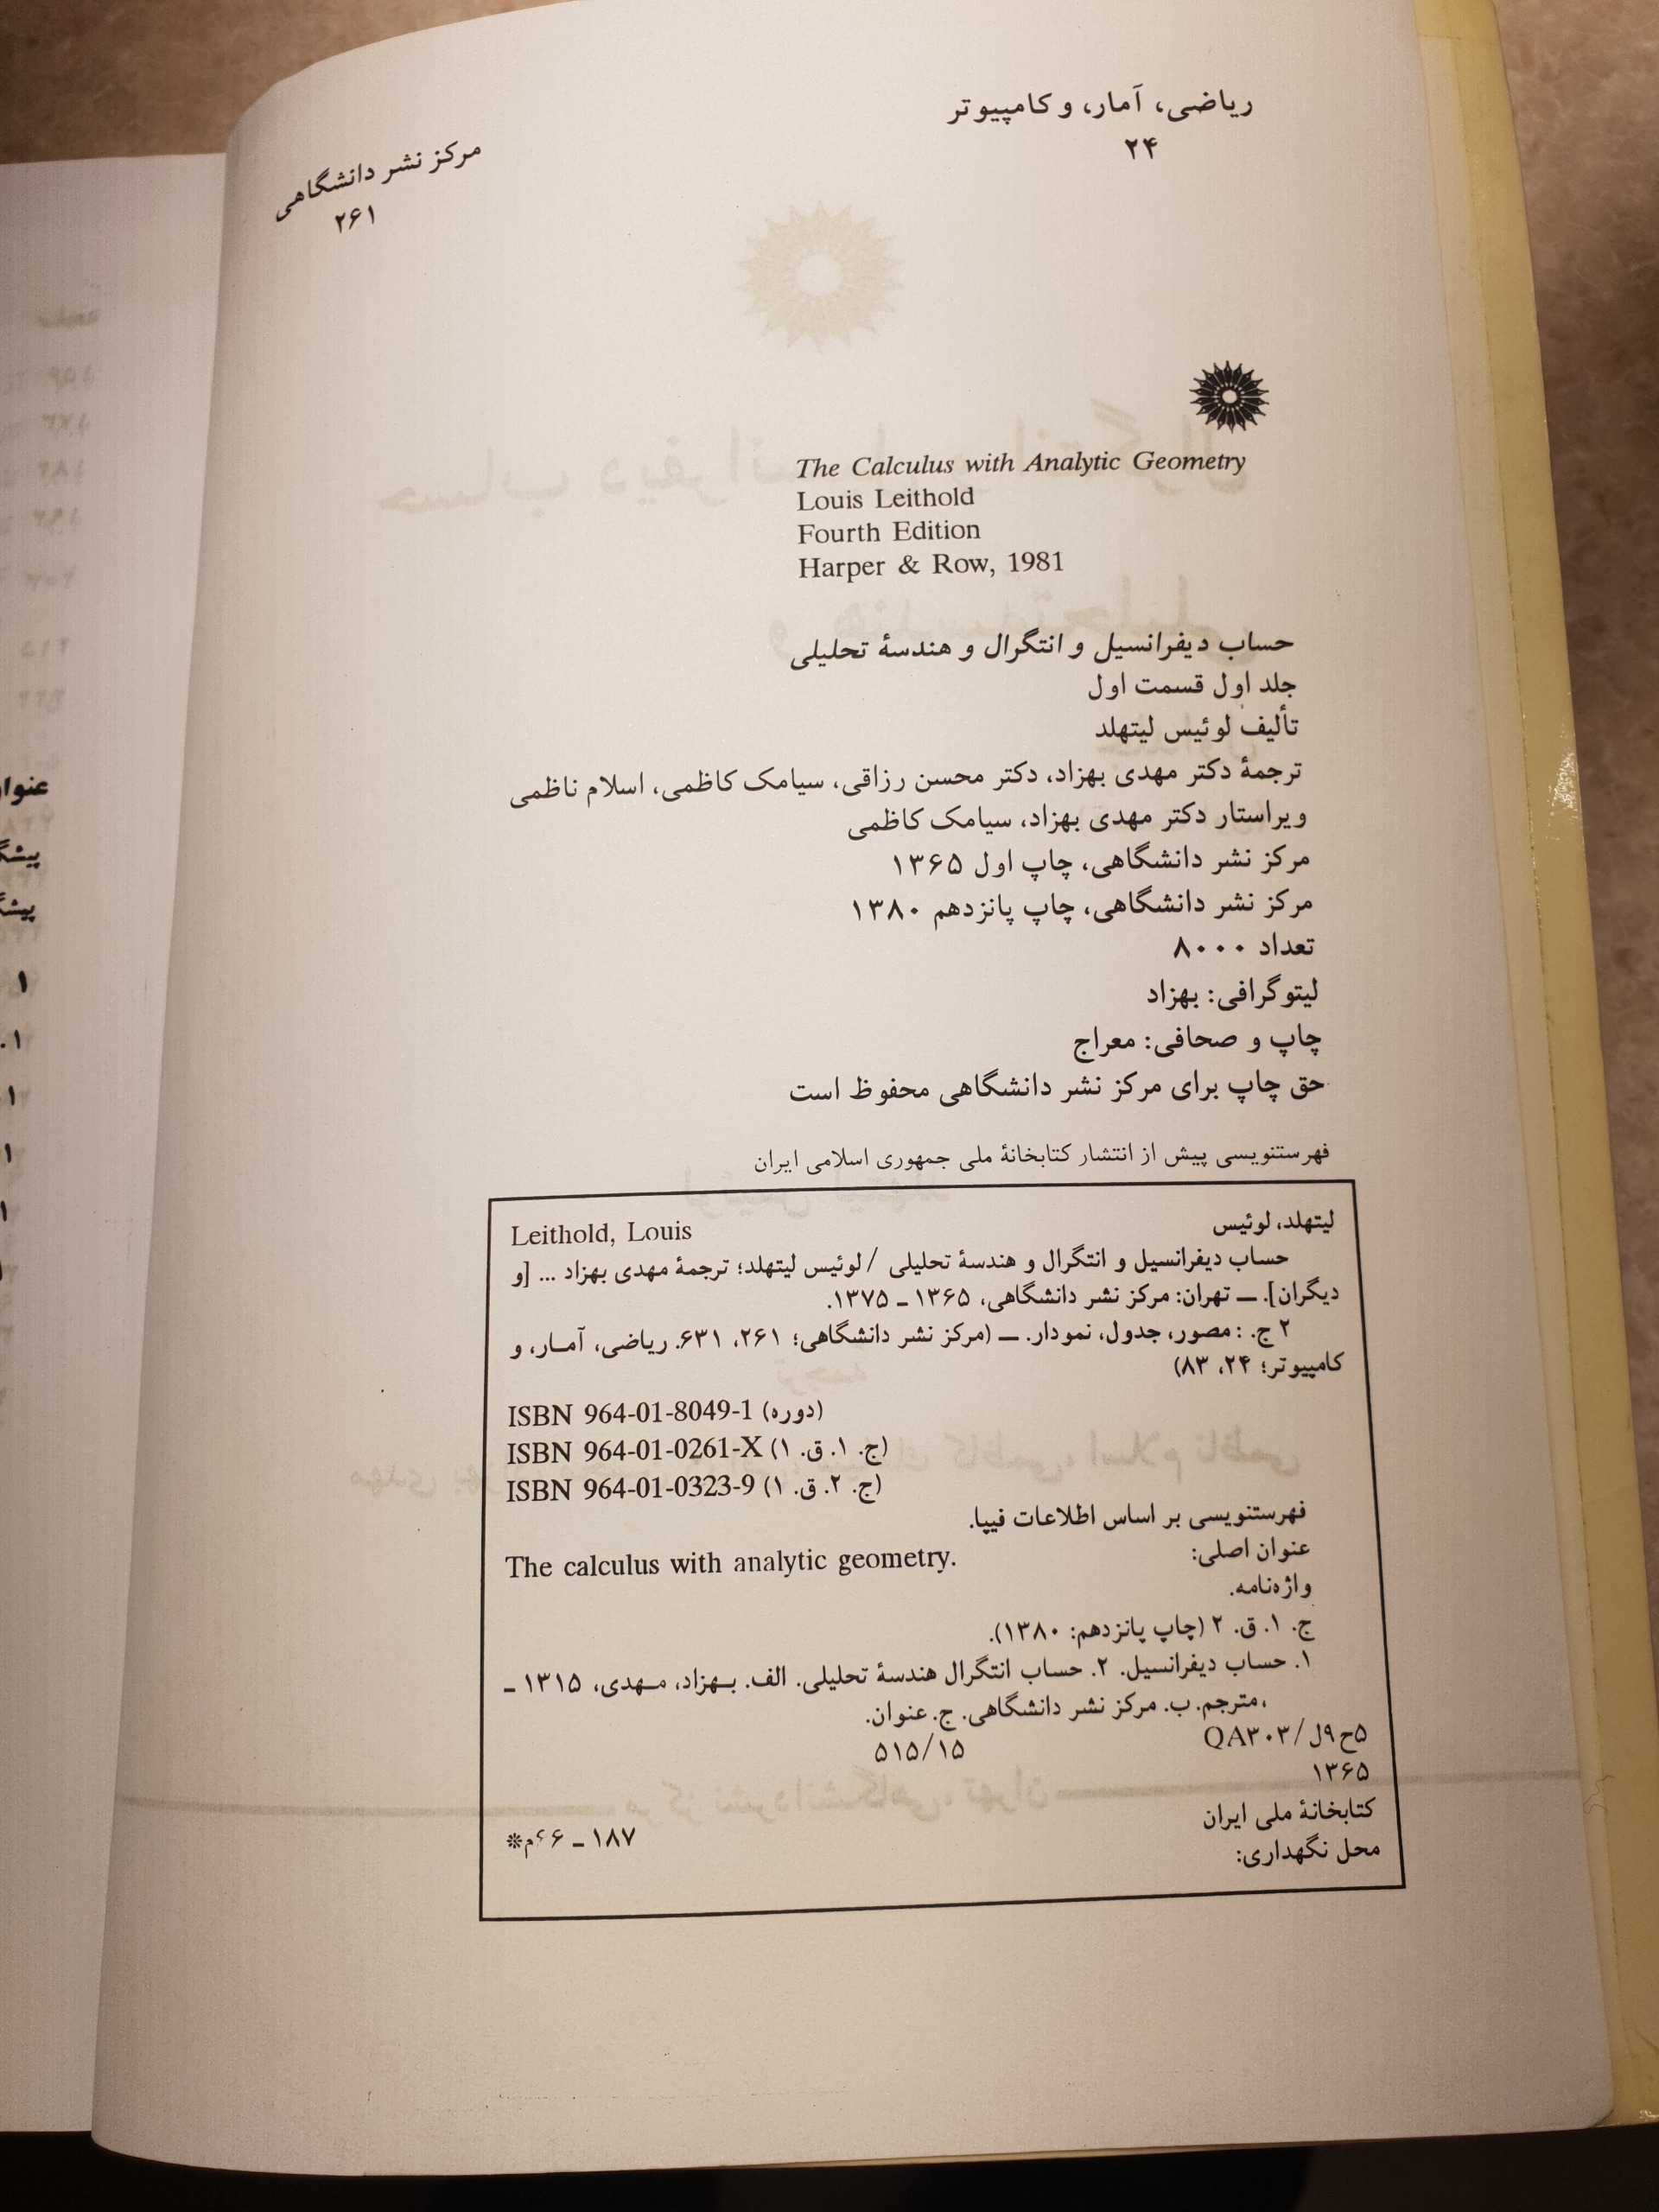 ریاضی، آمار، و کامپیوتر
۲۴
مرکز نشر دانشگاهی
۲۶۱
The Calculus with Analytic Geometry
Louis Leithold
Fourth Edition
Harper & Row, 1981
حساب دیفرانسیل و انتگرال و هندسهٔ تحلیلی
جلد اول قسمت اول
تألیف لوئیس لیتهلد
ترجمهٔ دکتر مهدی بهزاد، دکتر محسن رزاقی، سیامک کاظمی، اسلام ناظمی
ویراستار دکتر مهدی بهزاد، سیامک کاظمی
مرکز نشر دانشگاهی، چاپ اول ۱۳۶۵
مرکز نشر دانشگاهی، چاپ پانزدهم ۱۳۸۰
تعداد ۸۰۰۰
لیتوگرافی: بهزاد
چاپ و صحافی: معراج
حق چاپ برای مرکز نشر دانشگاهی محفوظ است
فهرستنویسی پیش از انتشار کتابخانهٔ ملی جمهوری اسلامی ایران
لیتهلد، لوئیس Leithold, Louis
حساب دیفرانسیل و انتگرال و هندسهٔ تحلیلی / لوئیس لیتهلد؛ ترجمهٔ مهدی بهزاد ... [و
دیگران]. ـــ تهران: مرکز نشر دانشگاهی، ۱۳۶۵ ـ ۱۳۷۵.
۲ ج. : مصور، جدول، نمودار. ـــ (مرکز نشر دانشگاهی؛ ۲۶۱، ۶۳۱. ریاضی، آمـار، و
کامپیوتر؛ ۲۴، ۸۳)
ISBN 964-01-8049-1 (دوره)
ISBN 964-01-0261-X (ج. ۱. ق. ۱)
ISBN 964-01-0323-9 (ج. ۲. ق. ۱)
فهرستنویسی بر اساس اطلاعات فیپا.
عنوان اصلی: The calculus with analytic geometry.
واژه‌نامه.
ج. ۱. ق. ۲ (چاپ پانزدهم: ۱۳۸۰).
۱. حساب دیفرانسیل. ۲. حساب انتگرال هندسهٔ تحلیلی. الف. بـهزاد، مـهدی، ۱۳۱۵ ـ
، مترجم. ب. مرکز نشر دانشگاهی. ج. عنوان.
۵ح۹ل/QA۳۰۳ ۵۱۵/۱۵
۱۳۶۵
کتابخانهٔ ملی ایران
محل نگهداری: